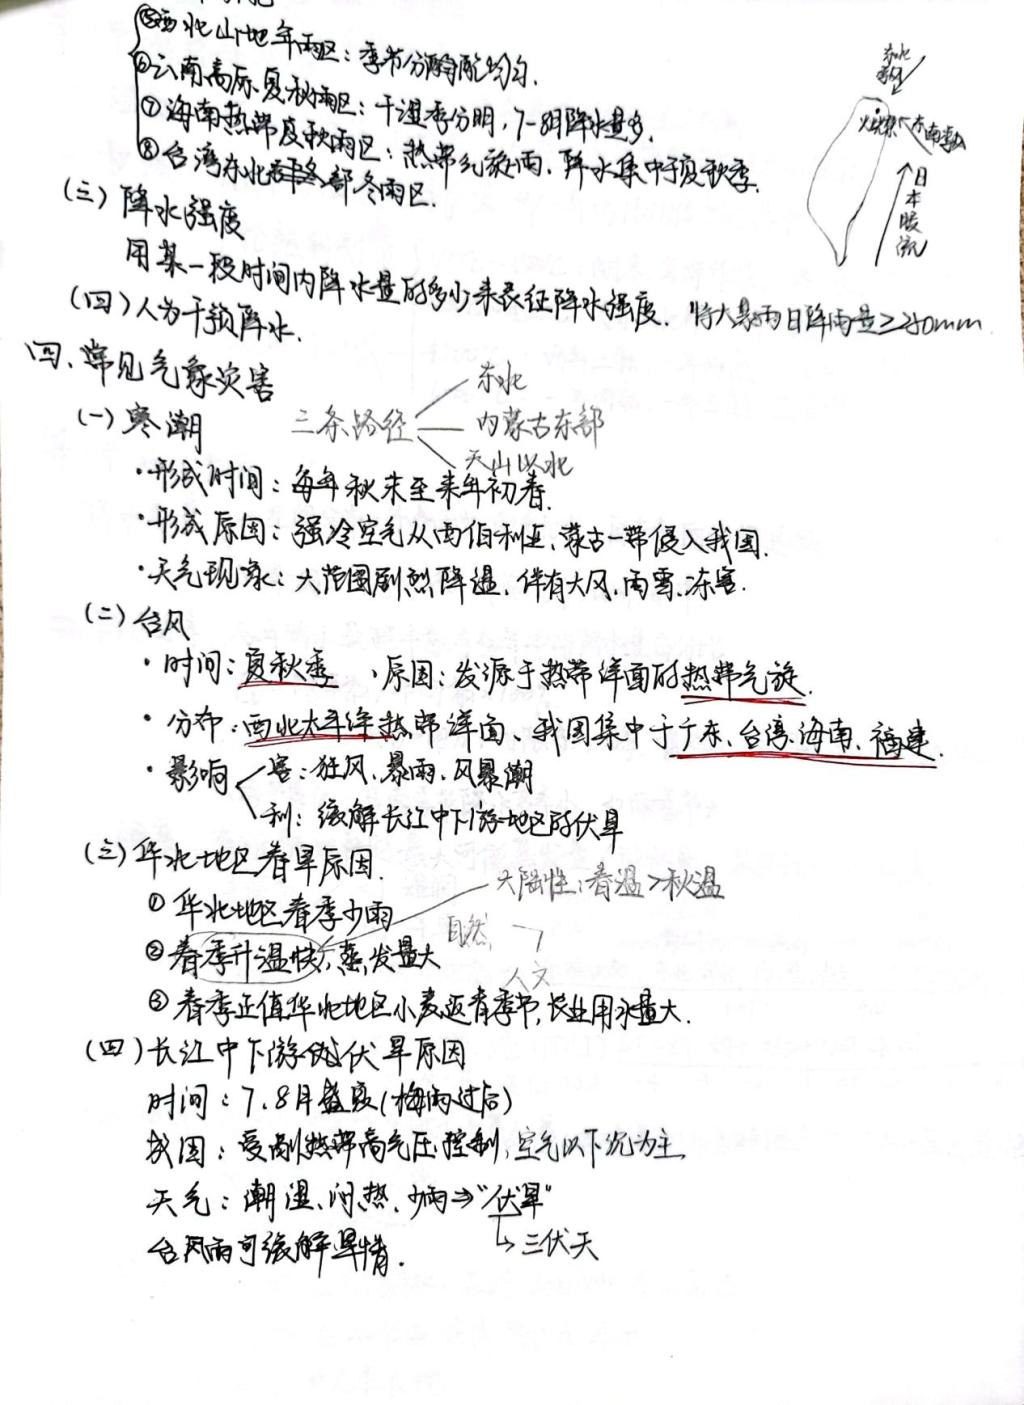 ⑤西北山地年雨区：季节分配均匀.
⑥云南高原夏秋雨区：干湿季分明，7-8月降水量多.
⑦海南热带夏秋雨区：热带气旋雨，降水集中于夏秋季.
⑧台湾东北部冬雨区.
东北
季风
火烧寮
东南季风
日本暖流
(三)降水强度
用某一段时间内降水量的多少来表征降水强度. 特大暴雨日降雨量≥250mm
(四)人为干预降水.
四、常见气象灾害
(一)寒潮 三条路径 东北
内蒙古东部
天山以北
·形成时间：每年秋末至来年初春.
·形成原因：强冷空气从西伯利亚、蒙古一带侵入我国.
·天气现象：大范围剧烈降温，伴有大风、雨雪、冻害.
(二)台风
·时间：夏秋季 ·原因：发源于热带洋面的热带气旋.
·分布：西北太平洋热带洋面、我国集中于广东、台湾、海南、福建.
·影响 害：狂风、暴雨、风暴潮
利：缓解长江中下游地区的伏旱
(三)华北地区春旱原因.
大陆性：春温>秋温
①华北地区春季少雨
自然
②春季升温快，蒸发量大
人文
③春季正值华北地区小麦返青季节，农业用水量大.
(四)长江中下游伏旱原因
时间：7、8月盛夏(梅雨过后)
成因：受副热带高气压控制，空气以下沉为主
天气：潮湿、闷热、少雨⇒"伏旱"
台风雨可缓解旱情. ↳三伏天